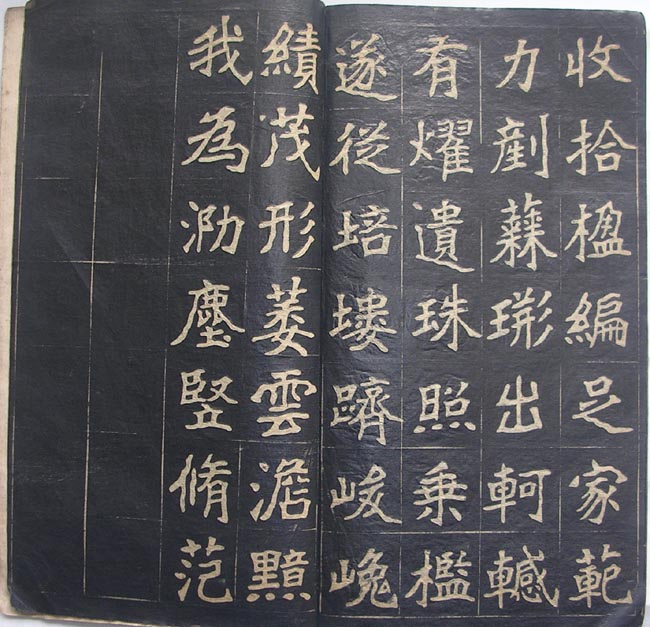 收拾楹編足家範
力剷出軻轗
有燿遺珠照乘檻
遂從培塿躋峻巉
績茂形萎雲澹黯
我為泐塵竪脩范